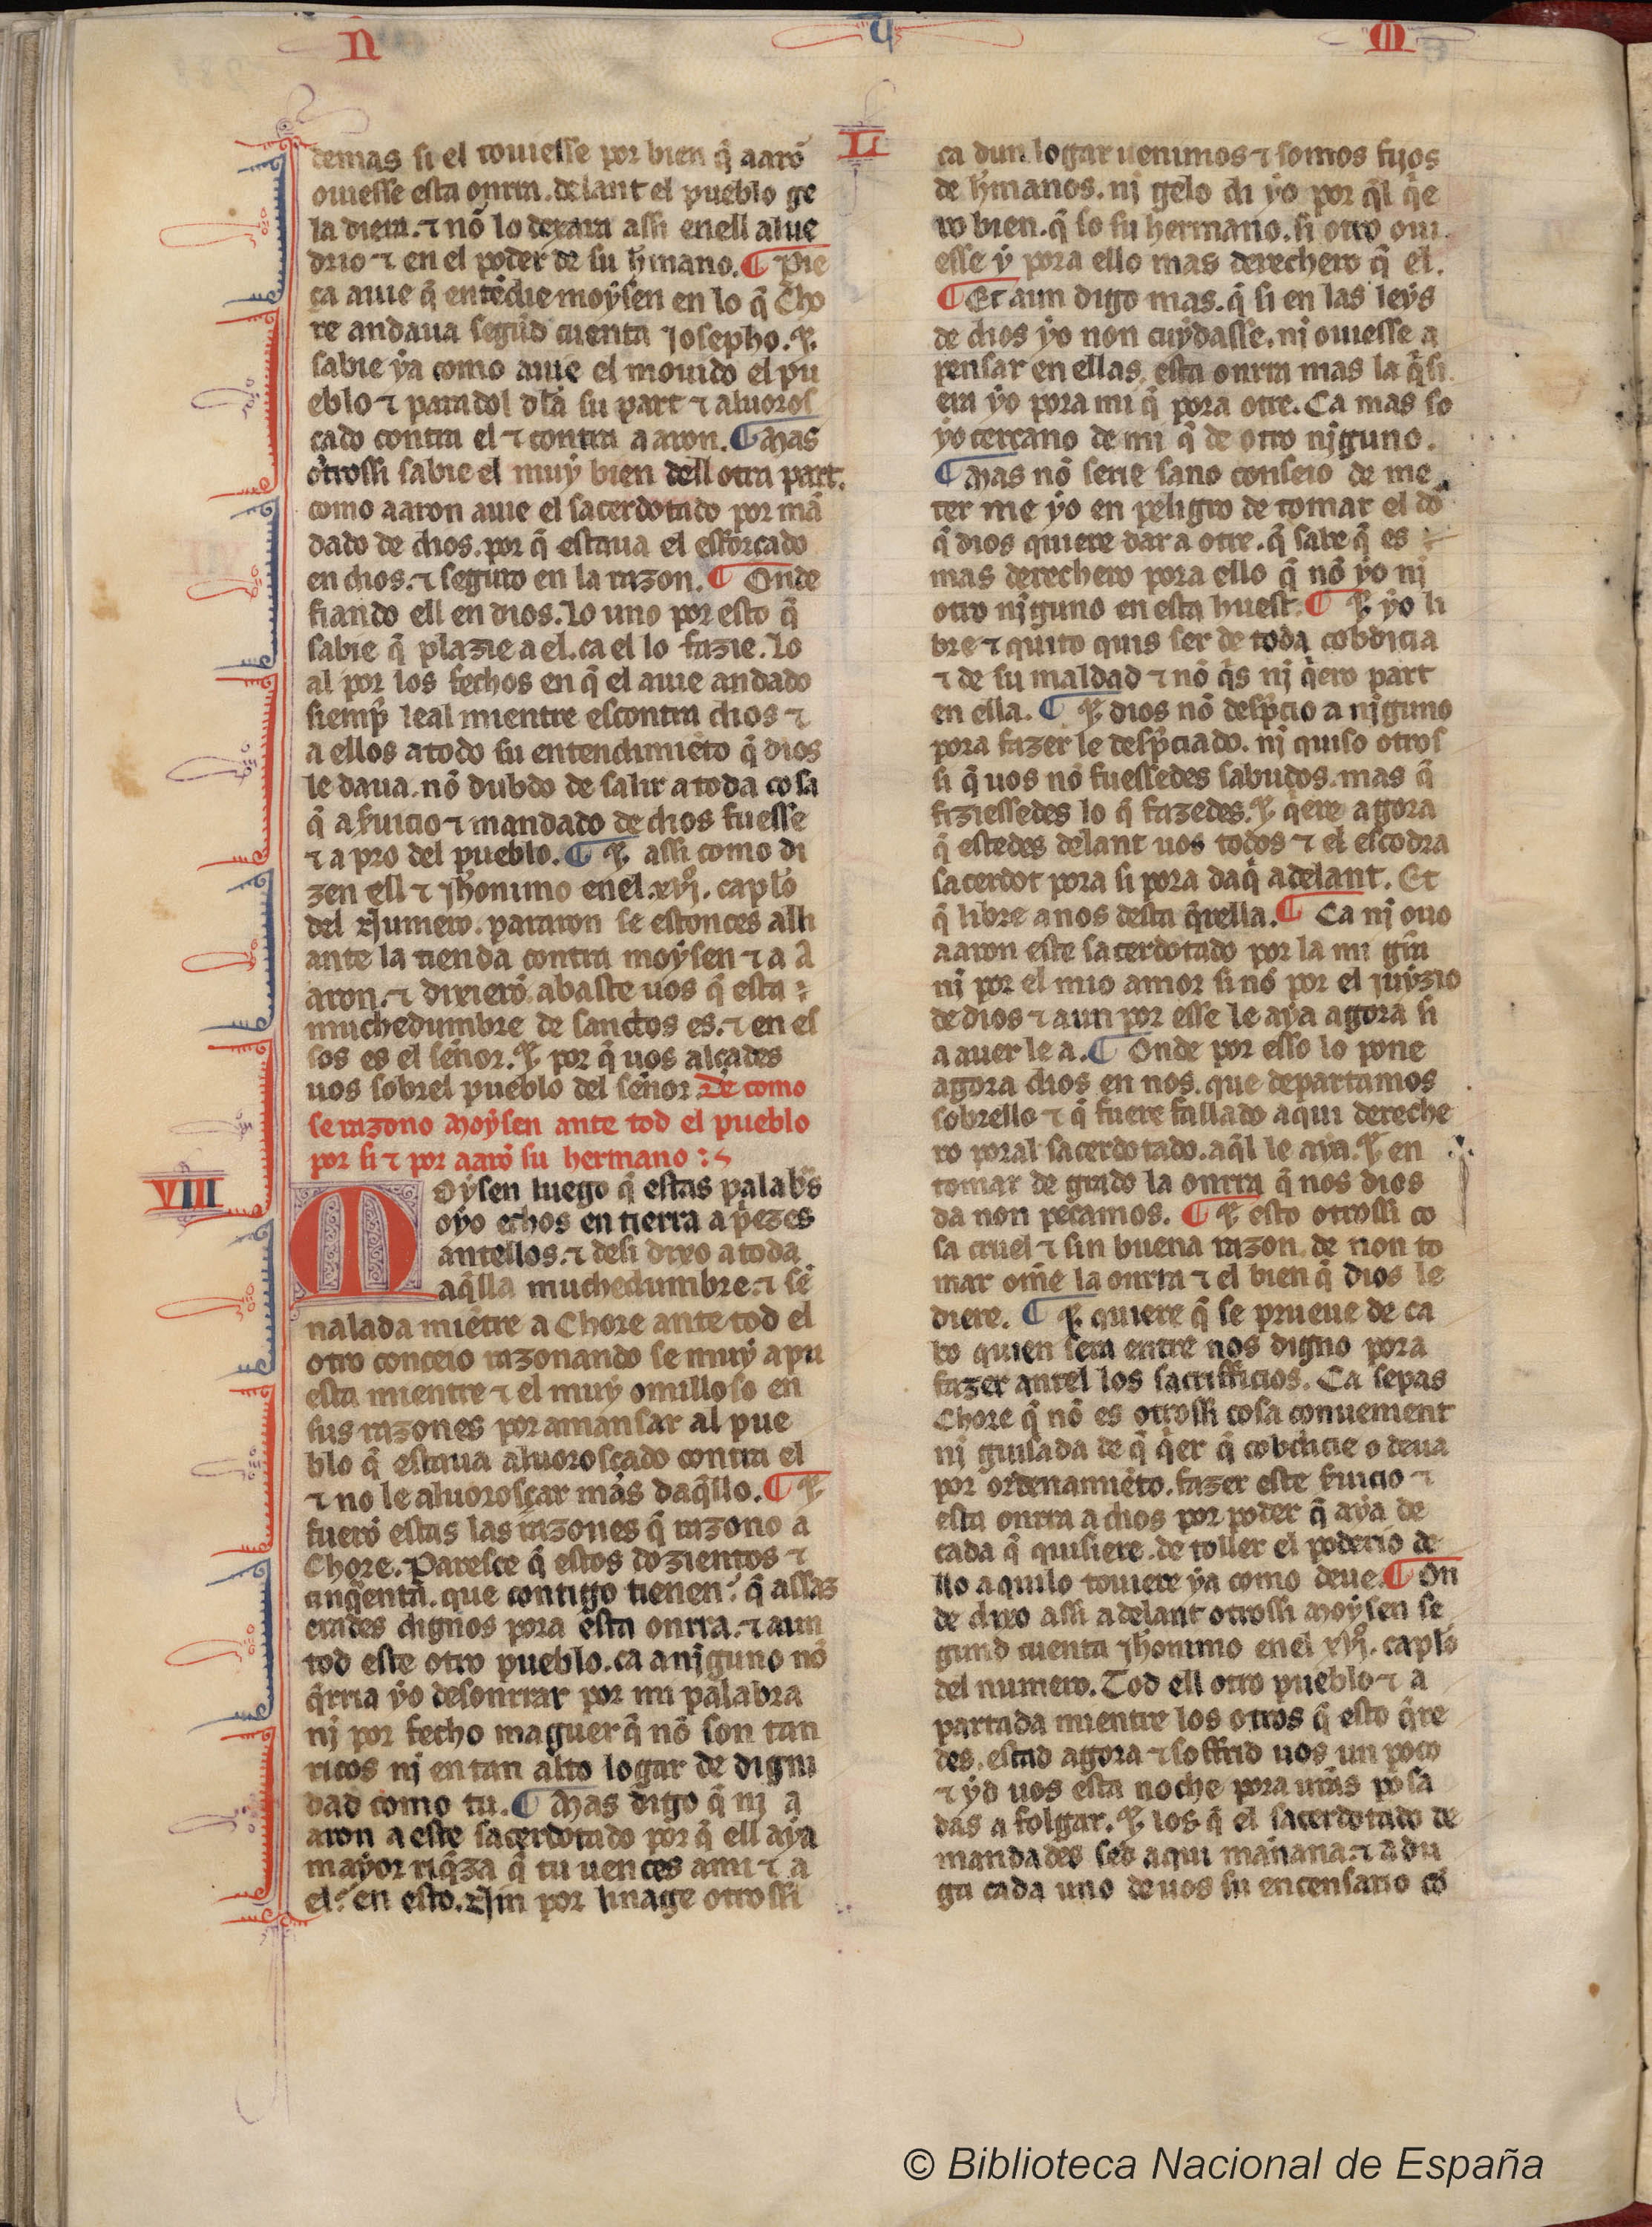 N U M
demas si el touiesse por bien q̃ aarõ
ouiesse esta onrra. delant el pueblo ge
la diera. ⁊ nõ lo dexara assi enell alue
drio ⁊ en el poder de su h̃mano. ¶ Pie
ça auie q̃ entẽdie moẏsen en lo q̃ Cho
re andaua segũd cuenta Josepho. ⁊
sabie ẏa como auie el mouido el pu
eblo ⁊ paradol dla su part ⁊ aluoros
cado contra el ⁊ contra aaron. ¶ Mas
otrossi sabie el muẏ bien dell otra part.
como aaron auie el sacerdotado por mã
dado de dios. por q̃ estaua el esforcado
en dios. ⁊ seguro en la razon. ¶ Onde
fiando ell en dios. lo uno por esto q̃
sabie q̃ plazie a el. ca el lo fazie. lo
al por los fechos en q̃ el auie andado
siemp̃ leal mientre escontra dios ⁊
a ellos a todo su entendimiẽto q̃ dios
le daua. nõ dubdo de salir a toda cosa
q̃ a ſuicio ⁊ mandado de dios fuesse
⁊ a pro del pueblo. ¶ ⁊ assi como di
zen ell ⁊ Jh̃onimo enel .xvjº. capl̃o
del Numero. pararon se estonces alli
ante la tienda contra moẏsen ⁊ a a
aron. ⁊ dixierõ. abaste uos q̃ esta
muchedumbre de sanctos es. ⁊ en es
sos es el señor. ⁊ por q̃ uos alçades
uos sobrel pueblo del señor De como
se razono Moẏsen ante tod el pueblo
por si ⁊ por aarõ su hermano
VIII
Moẏsen luego q̃ estas palab̃s
oẏo echos en tierra a p̃ezes
antellos. ⁊ desi dixo a toda
aq̃lla muchedumbre. ⁊ se
nalada miẽtre a Chore ante tod el
otro conceio razonando se muẏ apu
esta mientre ⁊ el muẏ omilloso en
sus razones por amansar al pue
blo q̃ estaua aluoroscado contra el
⁊ no le aluorosçar mas daq̃llo. ¶ ⁊
fuerõ estas las razones q̃ razono a
Chore. Paresce q̃ estos dozientos ⁊
cinq̃enta. que contigo tienen. q̃ assaz
erades dignos pora esta onrra. ⁊ aun
tod este otro pueblo. ca a njguno nõ
q̃rria ẏo desonrrar por mi palabra
nj por fecho maguer q̃ nõ son tan
ricos nj en tan alto logar de digni
dad como tu. ¶ Mas digo q̃ nj a
aron a este sacerdotado por q̃ ell aẏa
maẏor riq̃za q̃ tu uences a mi ⁊ a
el. en esto. Njn por linage otrossi
L
ca dun logar uenimos ⁊ somos fijos
de h̃manos. nj gelo di ẏo por q̃l q̃e
ro bien. q̃ so su hermano. si otro oui
esse ẏ pora ello mas derechero q̃ el.
¶ Et aun digo mas. q̃ si en las leẏs
de dios ẏo non cuẏdasse. nj ouiesse a
pensar en ellas. esta onrra mas la q̃si
era ẏo pora mi q̃ pora otre. Ca mas so
ẏo cercano de mi q̃ de otro njguno.
¶ Mas nõ serie sano conseio de me
ter me ẏo en peligro de tomar el dõ
q̃ dios quiere dar a otre. q̃ sabe q̃ es
mas derechero pora ello q̃ nõ ẏo nj
otro njguno en esta huest. ¶ ⁊ ẏo li
bre ⁊ quito quis ser de toda cobdicia
⁊ de su maldad ⁊ nõ q̃s nj q̃ero part
en ella. ¶ ⁊ dios nõ desp̃cio a njguno
pora fazer le desp̃ciado. nj quiso otros
si q̃ uos nõ fuessedes sabudos. mas q̃
fiziessedes lo q̃ fazedes. ⁊ q̃ere agora
q̃ estedes delant uos todos ⁊ el escodra
sacerdot pora si pora daq̃ adelant. Et
q̃ libre a nos desta q̃rella. ¶ Ca nj ouo
aaron este sacerdotado por la mi gr̃a
nj por el mio amor si nõ por el juẏzio
de dios ⁊ aun por esse le aẏa agora si
a auer le a. ¶ Onde por esso lo pone
agora dios en nos. que departamos
sobrello ⁊ q̃ fuere fallado aqui dereche
ro poral sacerdotado. aq̃l le aẏa. ⁊ en
tomar de grado la onrra q̃ nos dios
da non pecamos. ¶ ⁊ esto otrossi co
sa cruel ⁊ sin buena razon. de non to
mar om̃e la onrra ⁊ el bien q̃ dios le
diere. ¶ ⁊ quiere q̃ se prueue de ca
bo quien sera entre nos digno pora
fazer antel los sacrifficios. Ca sepas
Chore q̃ nõ es otrossi cosa conuenient
nj guisada de q̃ q̃er q̃ cobdicie o deua
por ordenamiẽto. fazer este ſuicio ⁊
esta onrra a dios por poder q̃ aẏa de
cada q̃ quisiere. de toller el poderio de
llo a qui lo touiere ẏa como deue. ¶ On
de dixo assi adelant otrossi Moẏsen se
gund cuenta Jh̃onimo enel xvjº. capl̃o
del numero. Tod ell otro pueblo ⁊ a
partada mientre los otros q̃ esto q̃re
des. estad agora ⁊ soffrid uos un poco
⁊ ẏd uos esta noche pora ur̃as posa
das a folgar. ⁊ los q̃ el sacerdotado de
mandades sed aqui mañana. ⁊ adu
ga cada uno de uos su encensario cõ
© Biblioteca Nacional de España